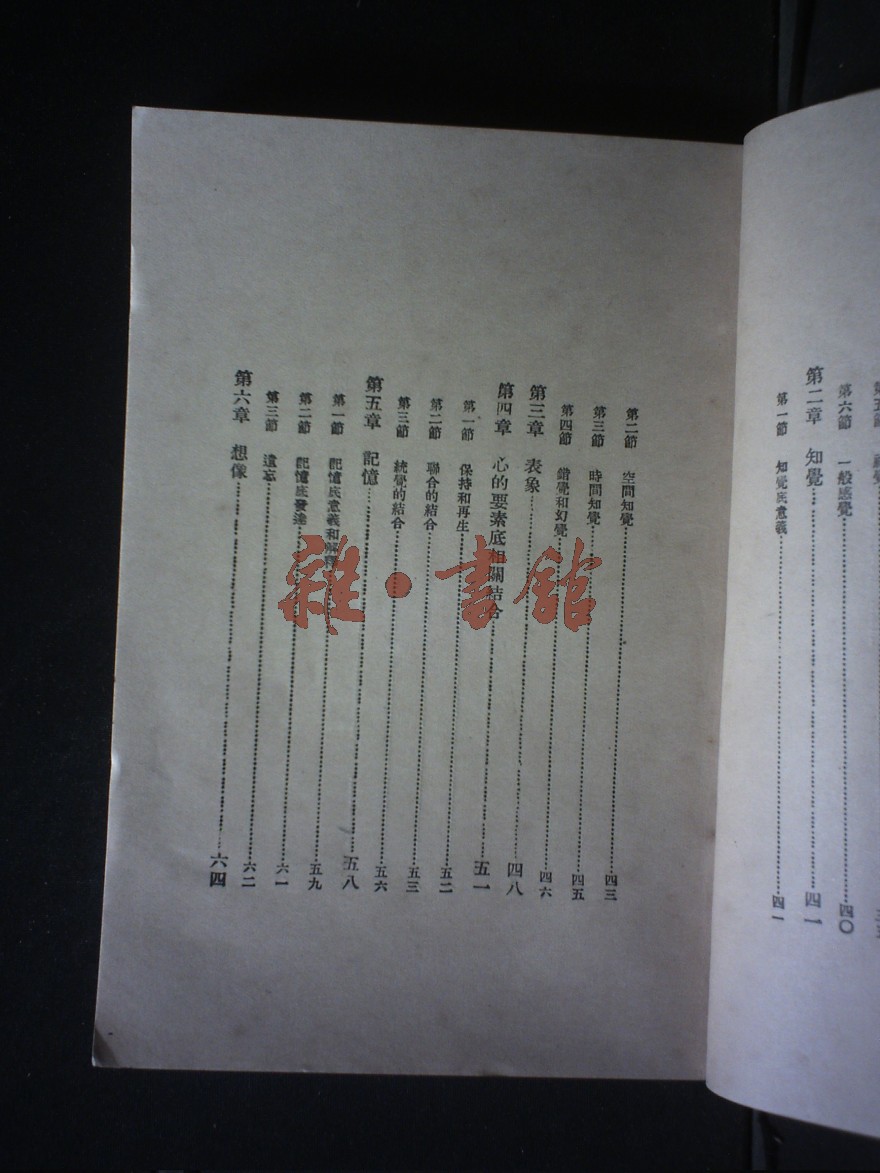 第六節　一般感覺……四〇
第二章　知覺……四一
第一節　知覺底意義……四一
第二節　空間知覺……四三
第三節　時間知覺……四五
第四節　錯覺和幻覺……四六
第三章　表象……四八
第四章　心的要素底相關結合……五一
第一節　保持和再生……五二
第二節　聯合的結合……五三
第三節　統覺的結合……五六
第五章　記憶……五八
第一節　記憶底意義和解釋……五九
第二節　記憶底發達……六一
第三節　遺忘……六二
第六章　想像……六四
雜·書館